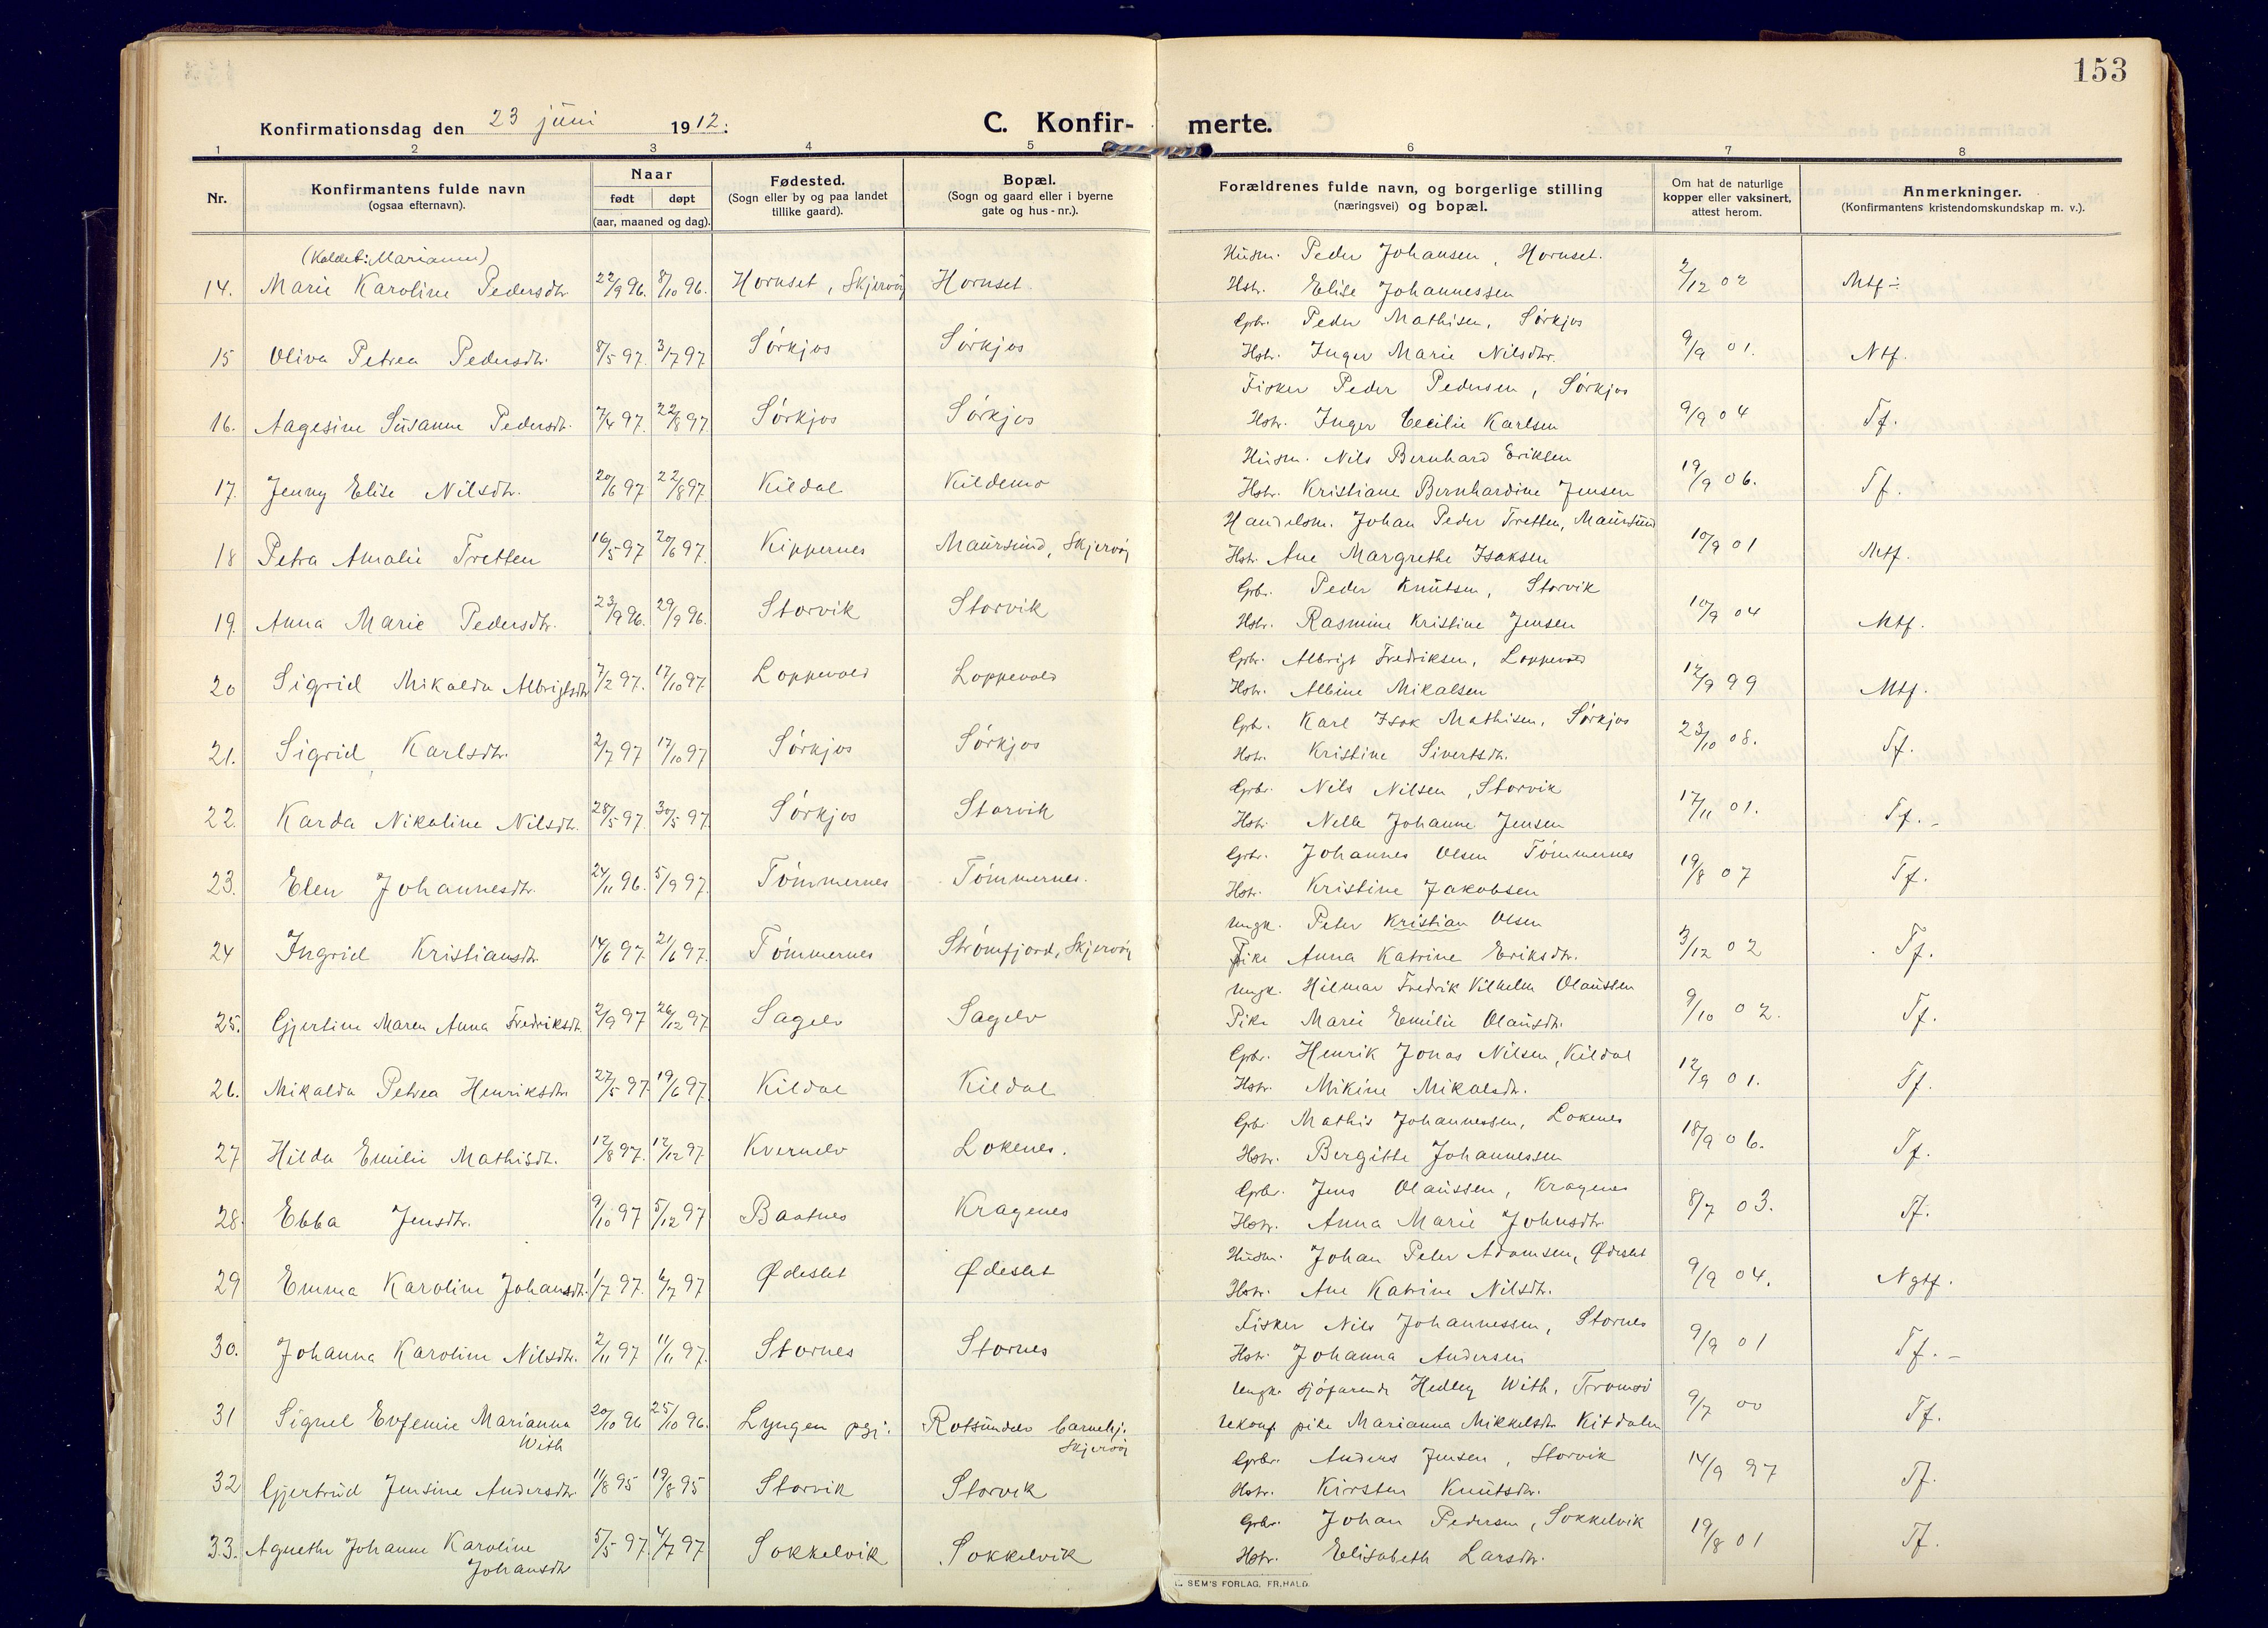 153
Konfirmationsdag den 23 juni 1912:
C. Konfir- merte.
1 2 3 4 5 6 7 8
Nr. Konfirmantens fulde navn (ogsaa efternavn). Naar født døpt (aar, maaned og dag). Fødested. (Sogn eller by og paa landet tillike gaard). Bopæl. (Sogn og gaard eller i byerne gate og hus-nr.). Forældrenes fulde navn, og borgerlige stilling (næringsvei) og bopæl. Om hat de naturlige kopper eller vaksinert, attest herom. Anmerkninger. (Konfirmantens kristendomskundskap m. v.).
(Kaldet: Marianne) Husm. Peder Johansen, Hornset.
14. Marie Karoline Pedersdtr. 22/9 96. 8/10 96. Hornset, Skjervøy Hornset Hstr. Elise Johannessen 2/12 02 Mtf÷
Gbr. Peder Mathisen, Sørkjos
15 Oliva Petrea Pedersdtr. 8/5 97. 3/7 97 Sørkjos Sørkjos Hstr. Inger Marie Nilsdtr. 9/9 01. Ntf.
Fisker Peder Pedersen, Sørkjos
16. Aagesine Susanne Pedersdtr. 7/4 97. 22/8 97. Sørkjos Sørkjos Hstr. Inger Cecilie Karlsen 9/9 04 Tf.
Husm. Nils Bernhard Eriksen
17. Jenny Elise Nilsdtr. 20/6 97 22/8 97. Kildal Kildemo Hstr. Kristiane Bernhardine Jensen 19/9 06. Tf.
Handelsm. Johan Peder Tretten, Maursund
18 Petra Amalie Tretten 16/5 97 20/6 97. Kippernes Maursund, Skjervøy Hstr. Ane Margrethe Isaksen 10/9 01 Mtf.
Gbr. Peder Knutsen, Storvik
19. Anna Marie Pedersdtr. 23/9 96. 29/9 96. Storvik Storvik Hstr. Rasmine Kristine Jensen 10/9 04 Mtf.
Gbr. Albrigt Fredriksen, Loppevold
20 Sigrid Mikalda Albrigtsdtr 7/2 97. 17/10 97. Loppevold Loppevold Hstr. Albine Mikalsen 12/9 99 Mtf.
Gbr. Karl Isak Mathisen, Sørkjos
21. Sigrid Karlsdtr. 2/7 97 17/10 97 Sørkjos Sørkjos Hstr. Kristine Sivertsdtr. 23/10 08. Tf.
Gbr. Nils Nilsen, Storvik
22. Karda Nikoline Nilsdtr. 28/5 97. 30/5 97. Sørkjos Storvik Hstr. Nella Johanne Jensen 17/11 01. Tf.-
Gbr. Johannes Olsen Tømmernes
23. Elen Johannesdtr. 24/11 96. 5/9 97. Tømmernes Tømmernes. Hstr. Kristine Jakobsen 19/8 07 Tf.
Ungk. Peter Kristian Olsen
24 Ingrid Kristiansdtr. 14/6 97. 21/6 97. Tømmernes Strømfjord, Skjervøy Pike Anna Katrine Eriksdtr. 3/12 02 Tf.
Ungk. Hilmar Fredrik Vilhelm Olaussen
25. Gjertine Maren Anna Fredriksdtr. 2/9 97 26/12 97. Sagelv Sagelv Pike Marie Emilie Olausdtr. 9/10 02. Tf.
Gbr. Henrik Jonas Nilsen, Kildal
26. Mikalda Petrea Henriksdtr 27/5 97. 19/6 97. Kildal Kildal Hstr. Mikine Mikalsdtr. 12/9 01. Tf.
Gbr. Mathis Johannessen, Lokenes
27 Hilda Emilie Mathisdtr. 12/8 97. 12/12 97 Kvernelv Lokenes. Hstr. Bergitte Johannessen 18/9 06. Tf.
Gbr. Jens Olaussen, Kragenes
28. Ebba Jensdtr. 9/10 97 5/12 97 Baatnes Kragenes Hstr. Anna Marie Johnsdtr. 8/7 03. Tf.
Husm. Johan Peter Adamsen, Ødeslet
29 Emma Karoline Johansdtr. 1/7 97. 6/7 97 Ødeslet Ødeslet Hstr. Ane Katrine Nilsdtr. 9/9 04. Ngtf.
Fisker Nils Johannessen, Stornes
30. Johanna Karoline Nilsdtr. 2/11 97 11/11 97. Stornes Stornes Hstr. Johanna Andersen 9/9 01 Tf.-
Ungk. sjøfarende Hedley With, Tromsø
31 Signel Evfemie Marianna 20/10 96 25/10 96. Lyngen pgj. Rotsundelv barnehj. Ukonf. pike Marianna Mikkelsdtr. Kitdalen 9/7 00 Tf.
With Skjervøy
Gbr. Anders Jensen, Storvik
32 Gjertrud Jensine Andersdtr. 11/8 95 19/8 95 Storvik Storvik Hstr. Kirsten Knutsdtr. 14/9 97 Tf.
Gbr. Johan Pedersen, Sokkelvik
33. Agnethe Johanne Karoline 5/5 97 4/7 97 Sokkelvik Sokkelvik Hstr. Elisabeth Larsdtr. 19/8 01 Tf.
Johansdtr
SEM'S FORLAG, FR.HALD